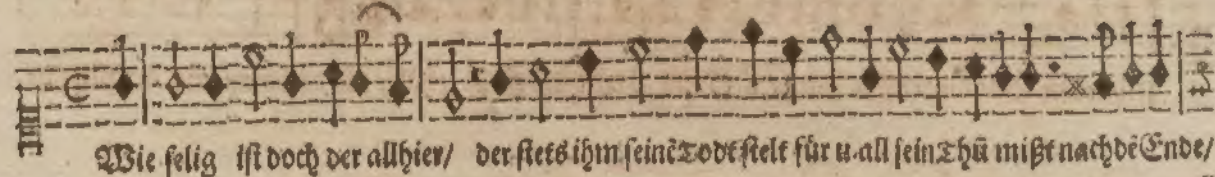 Wie selig ist doch der allhier/ der stets ihm seinē Todt stelt für u. all sein Thū mißt nach dē Ende/